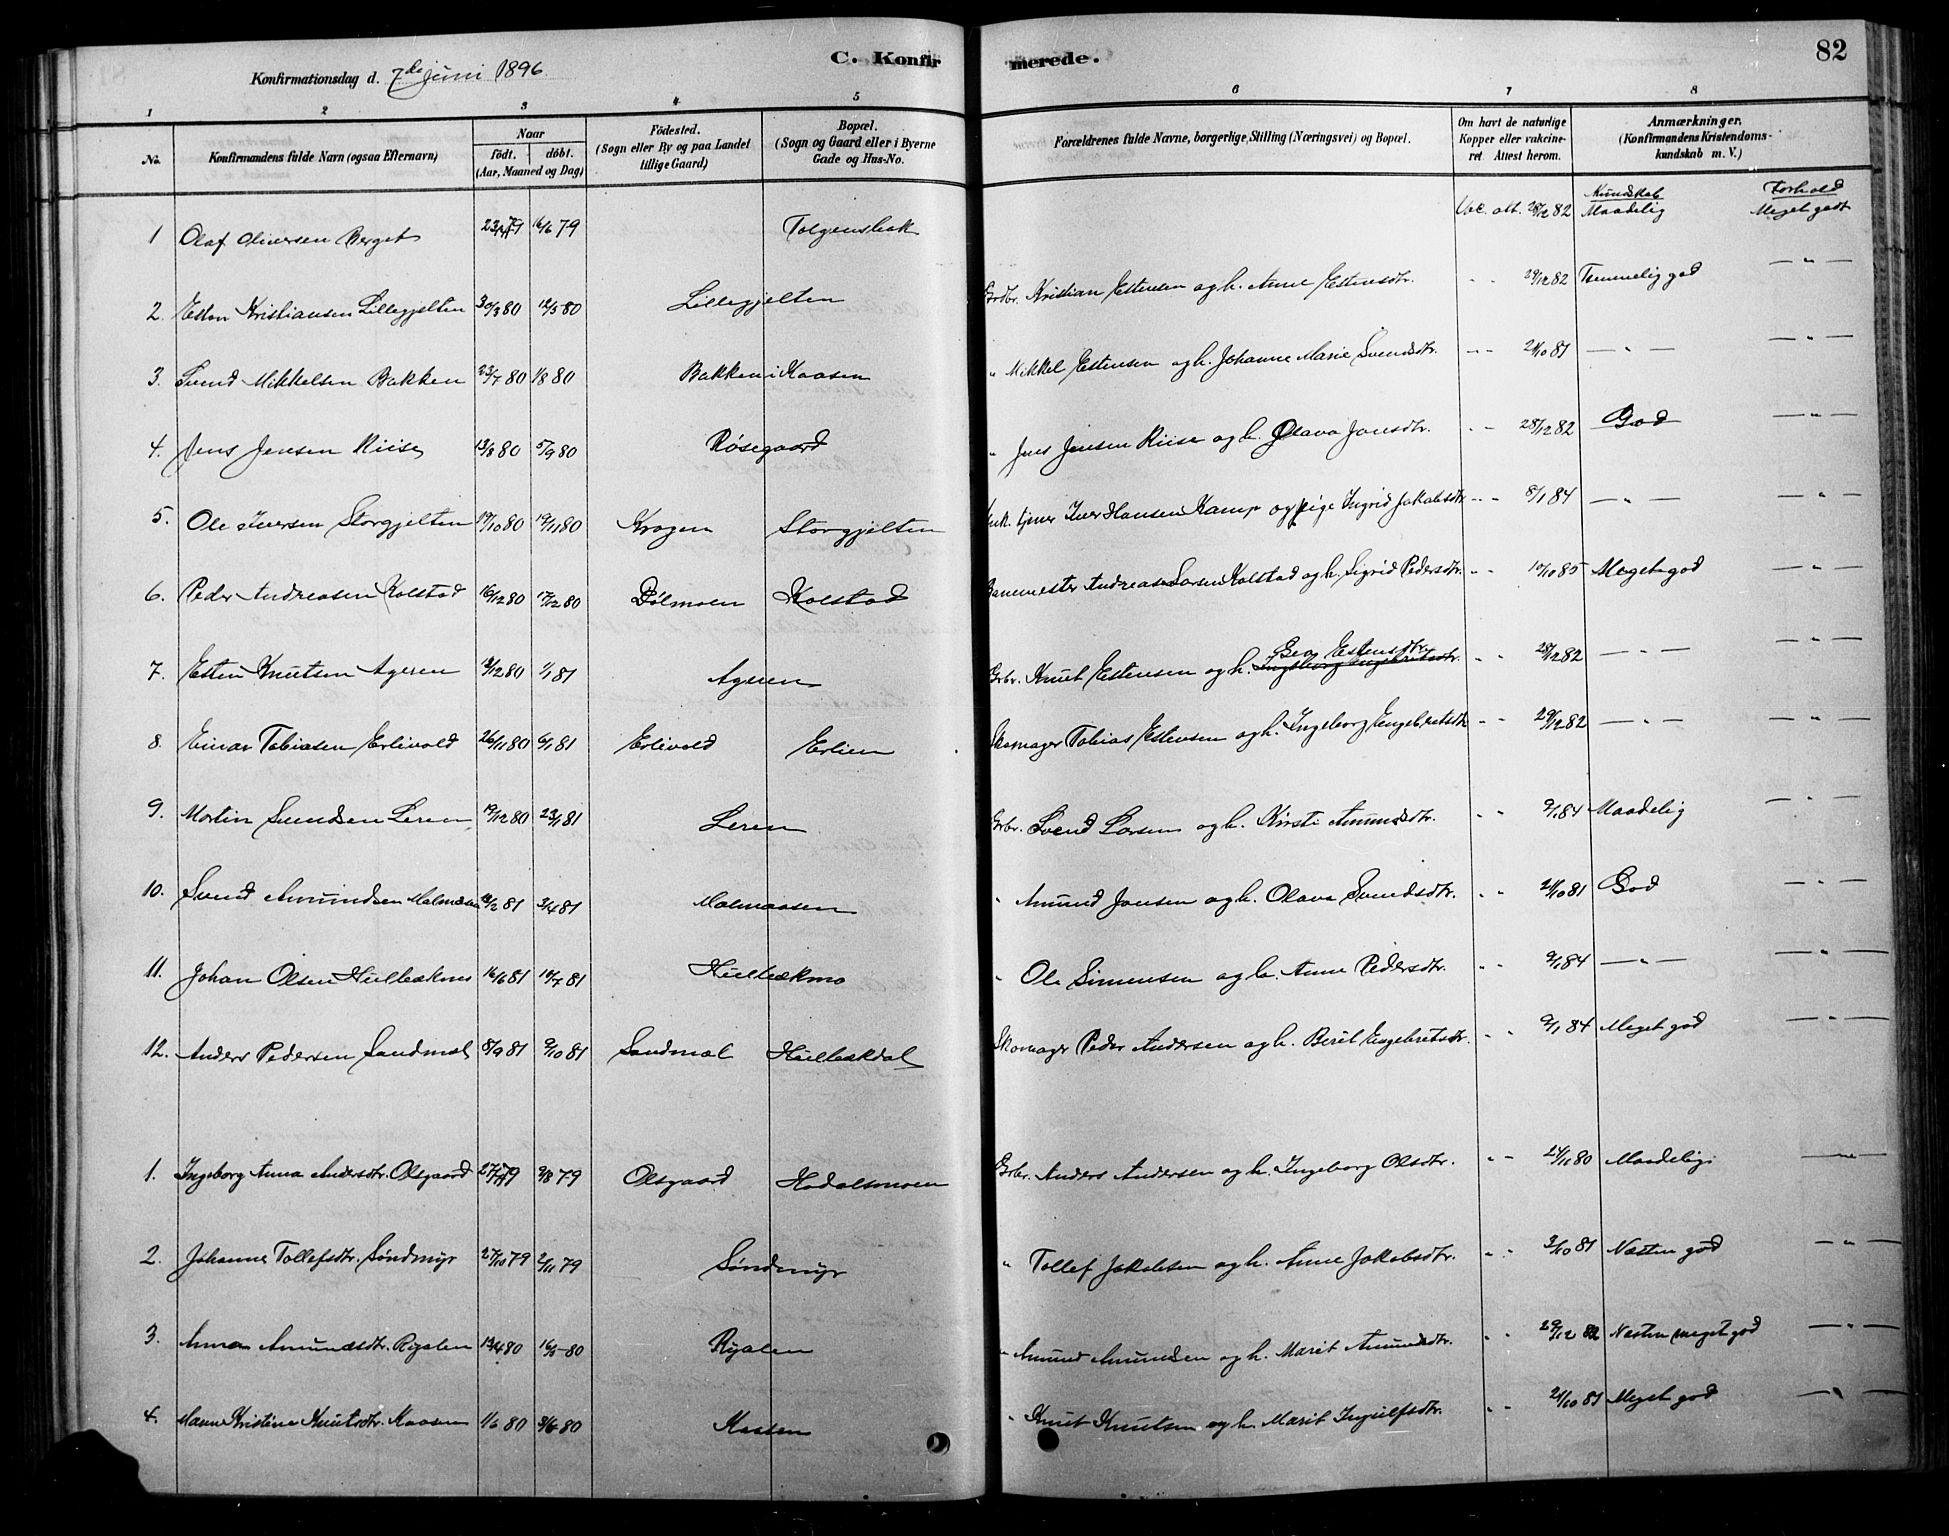 C. Konfirmerede.
82
Konfirmationsdag d. 7de Juni 1896.
1 2 3 4 5 6 7 8
No.
Konfirmandens fulde Navn (ogsaa Efternavn)
Naar
født. døbt.
(Aar, Maaned og Dag)
Födested.
(Sogn eller By og paa Landet
tillige Gaard)
Bopæl.
(Sogn og Gaard eller i Byerne
Gade og Hus-No.
Forældrenes fulde Navne, borgerlige, Stilling (Næringsvei) og Bopæl.
Om havt de naturlige
Kopper eller vakcine-
ret. Attest herom.
Anmærkninger.
(Konfirmandens Kristendoms-
kundskab m. V.)
Kundskab Forhold
1 Olaf Oliversen Berget 16/6 79 Tolgensbak Vac. att. 28/12 82 Maadelig Meget godt
2. Esten Kristiansen Lillegjelten 30/3 80 12/5 80 Lillegjelten Grdbr. Kristian Estensen og h. Anne Estensdtr. " " 29/12 82 Temmelig god — " —
3. Svend Mikkelsen Bakken 23/7 80 1/8 80 Bakken i Kaasen " Mikkel Estensen og h. Johanne Marie Svendsdtr. " " 21/10 81 — " — — " —
4. Jens Jensen Riise 13/8 80 5/9 80 Røsegaard " Jens Jensen Riise og h. Olava Jonsdtr. " " 28/12 82 God — " —
5. Ole Iversen Storgjelten 17/10 80 19/11 80 Krogen Storgjelten Unk. tjener Iver Hansen Kamp og pige Ingrid Jakobsdtr. " " 8/1 84 — " — — " —
6. Peder Andreasen Kolstad 16/12 80 17/12 80 Dølmoen Kolstad Banemester Andreas Larsen Kolstad og h. Sigrid Pedersdtr. " " 10/10 85 Meget god — " —
7. Esten Knutsen Ageren 1/1 81 Ageren Grbr. Knut Estensen og h. Ingeborg Engebretsdtr. Gea Estensdtr. " " 28/12 82 — " — — " —
8. Einar Tobiasen Erlivold 26/11 80 6/1 81 Erlivold Erlien Skomager Tobias Estensen og h. Ingeborg Engebretsdtr. " " 29/12 82 — " — — " —
9. Martin Svendsen Leren 19/12 80 23/1 81 Leren Grbr. Svend Larsen og h. Kirsti Amundsdtr. " " 9/1 84 Maadelig — " —
10. Svend Amundsen Malmaasen 3/4 81 Malmaasen " Amund Jonsen og h. Olava Svendsdtr. " " 21/10 81 God — " —
11. Johan Olsen Hulbækmo 16/6 81 10/7 81 Hulbækmo " Ole Simensen og h. Anne Pedersdtr. " " 9/1 84 — " — — " —
12. Anders Pedersen Sandmæl 8/9 81 9/10 81 Sandmæl Hulbækdal Skomager Peder Andersen og h. Berit Engebretsdtr. " " 9/1 84 Meget god — " —
1. Ingeborg Anna Andersdtr. Olsgaard 3/8 79 Olsgaard Hodalsmoen Grbr. Anders Andersen og h. Ingeborg Olsdtr. " " 24/11 80 Maadelig — " —
2. Johanne Tollefsdtr. Søndmyr 27/10 79 2/11 79 Søndmyr " Tollef Jakobsen og h. Anne Jakobsdtr. " " 3/10 81 Næsten god — " —
3. Anna Amundsdtr. Ryalen 13/4 80 16/5 80 Ryalen " Amund Amundsen og h. Marit Amundsdtr. " " 29/12 82 Næsten meget god — " —
4. Kristine Knutsdtr. Kaasen 1/6 80 3/6 80 Kaasen " Knut Knutsen og h. Marit Ingulfsdtr. " " 21/10 81 Meget god — " —